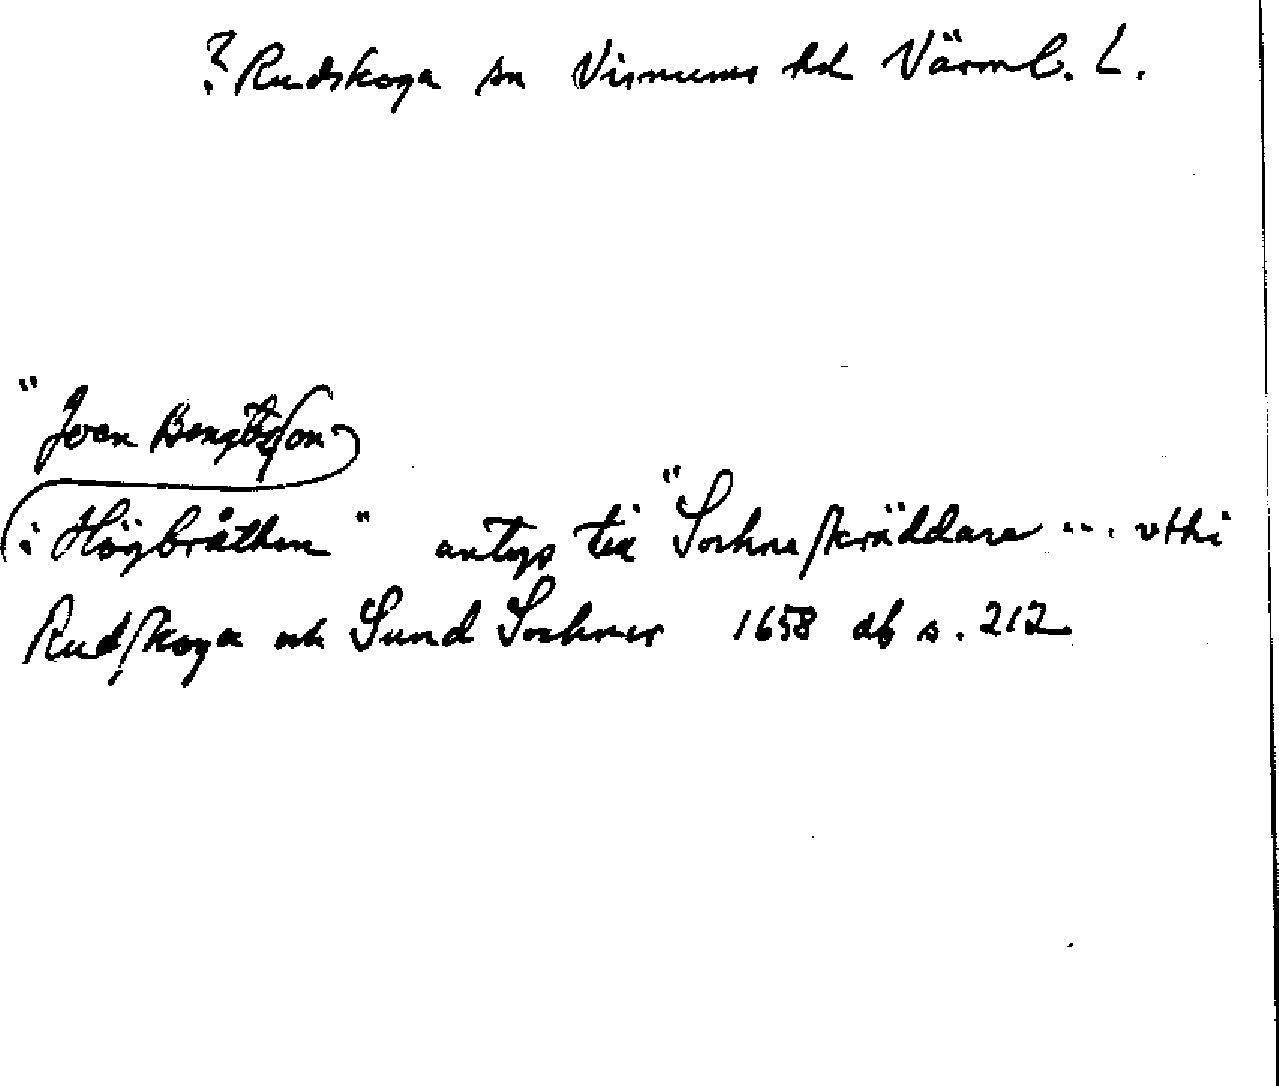 ? Rudskoga sn Visnums hd Värml. L.
"Joen Bengtzson
i Högbråthen" antogs till "Sochneskräddare ... vthi
Rudskoga och Sund Sochner 1658 db s. 212